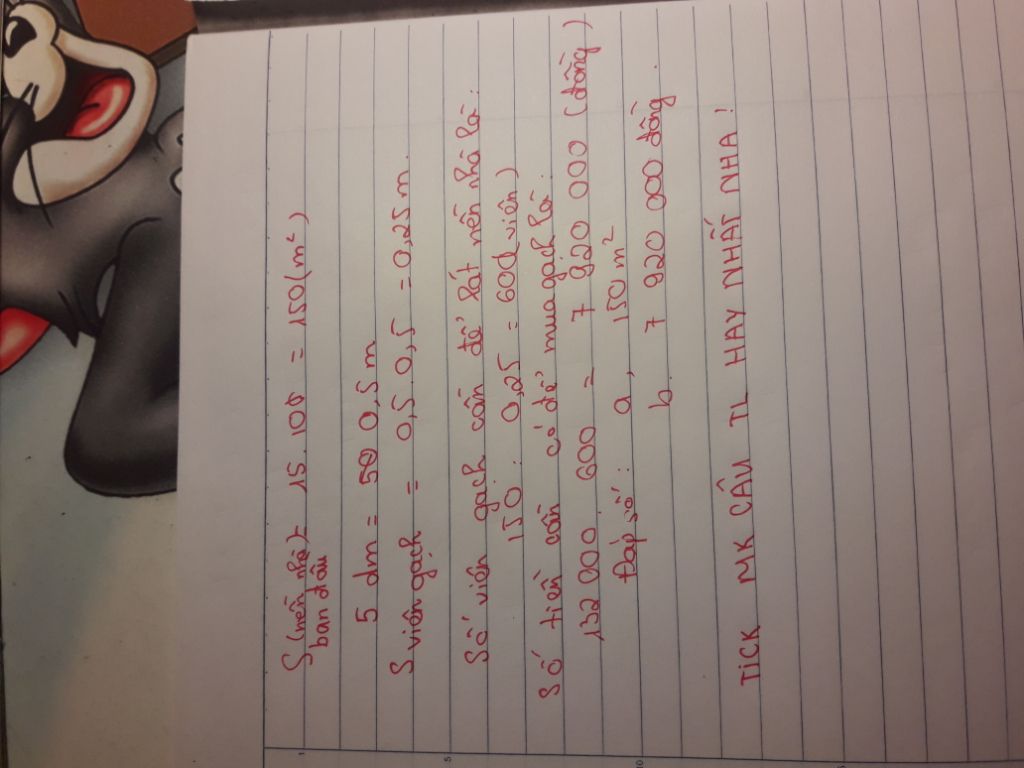 S(nền nhà) = 15 . 10 = 150(m²)
ban đầu
5 dm = 0,5m
S viên gạch = 0,5 . 0,5 = 0,25m
Số viên gạch cần để lát nền nhà là:
150 : 0,25 = 600(viên)
Số tiền cần có để mua gạch là:
132 000 . 600 = 7 920 000 (đồng)
Đáp số: a, 150m²
b. 7 920 000 đồng.
TICK MK CÂU TL HAY NHẤT NHA!
1
5
10